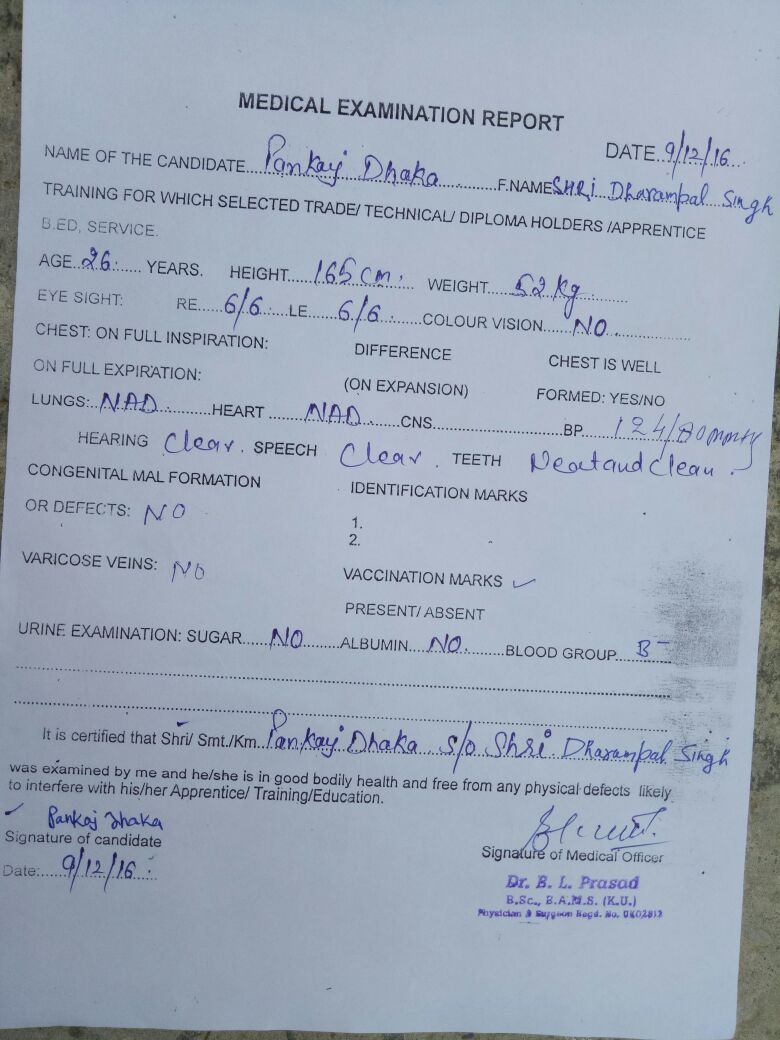 MEDICAL EXAMINATION REPORT
DATE..9/12/16...
NAME OF THE CANDIDATE....Pankaj Dhaka..........F.NAME SHRi Dharampal Singh
TRAINING FOR WHICH SELECTED TRADE/ TECHNICAL/ DIPLOMA HOLDERS /APPRENTICE
B.ED, SERVICE.
AGE..26...... YEARS. HEIGHT....165 cm. WEIGHT.....52 kg..........
EYE SIGHT: RE.....6/6....LE.....6/6.......COLOUR VISION......NO..............
CHEST: ON FULL INSPIRATION: DIFFERENCE CHEST IS WELL
ON FULL EXPIRATION: (ON EXPANSION) FORMED: YES/NO
LUNGS:..NAD..........HEART .......NAD.....CNS..............................BP......124/80 mmHg
HEARING Clear. SPEECH Clear. TEETH Neat and Clean.
CONGENITAL MAL FORMATION IDENTIFICATION MARKS
OR DEFECTS: NO
1.
2.
VARICOSE VEINS: NO VACCINATION MARKS ✓
PRESENT/ ABSENT
URINE EXAMINATION: SUGAR.....NO........ALBUMIN...NO........BLOOD GROUP....B-
It is certified that Shri/ Smt./Km..Pankaj Dhaka s/o Shri Dharampal Singh
was examined by me and he/she is in good bodily health and free from any physical defects likely
to interfere with his/her Apprentice/ Training/Education.
Pankaj Dhaka
Signature of candidate
Signature of Medical Officer
Date:....9/12/16.
Dr. B. L. Prasad
B.Sc., B.A.M.S. (K.U.)
Physician & Surgeon Regd. No.